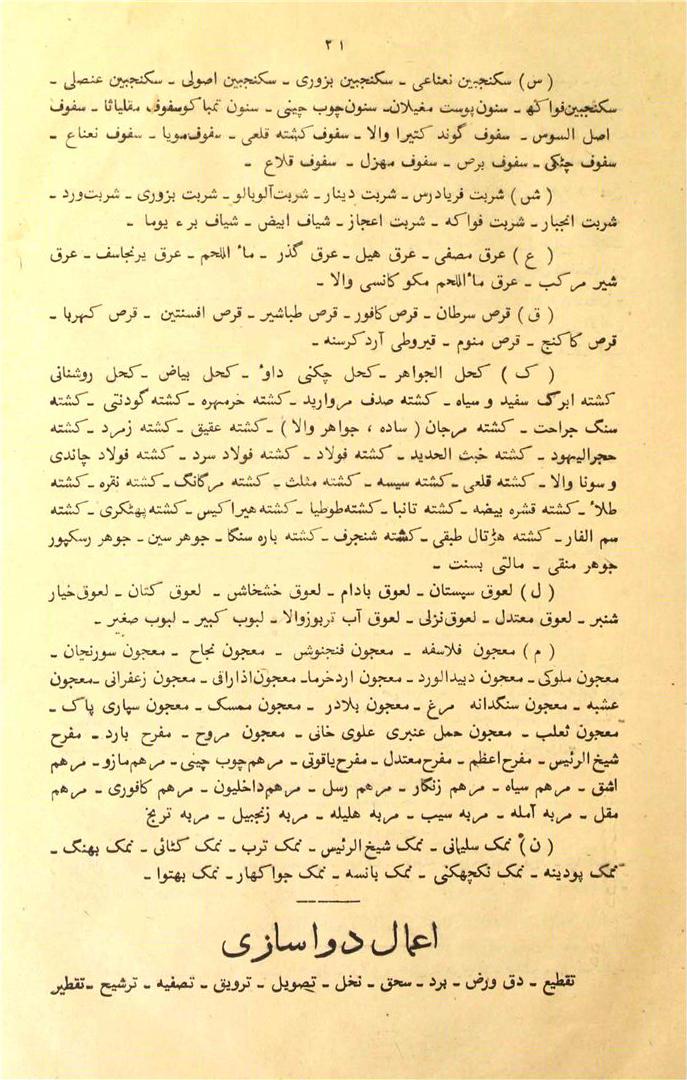 ۲۱
( س ) سکنجبین نعناعی ۔ سکنجبین بزوری ۔ سکنجبین اصولی ۔ سکنجبین عنصلی ۔
سکنجبین فواکھ ۔ سنون پوست مغیلان۔ سنون چوب چینی ۔ سنون تمباکو سفوف مقلیاثا ۔ سفوف
اصل السوس ۔ سفوف گوند کتیرا والا ۔ سفوف کشته قلعی ۔ سفوف مویا ۔ سفوف نعناع ۔
سفوف چٹکی ۔ سفوف برص ۔ سفوف مهزل ۔ سفوف قلاع ۔
( ش ) شربت فریادرس ۔ شربت دینار ۔ شربت آلوبالو ۔ شربت بزوری ۔ شربت ورد ۔
شربت انجبار ۔ شربت فواکه ۔ شربت اعجاز ۔ شیاف ابیض ۔ شیاف برء یوما ۔
( ع ) عرق مصفی ۔ عرق هیل ۔ عرق گذر ۔ ماء اللحم ۔ عرق برنجاسف ۔ عرق
شیر مرکب ۔ عرق ماءاللحم مکو کاسنی والا ۔
( ق ) قرص سرطان ۔ قرص کافور ۔ قرص طباشیر ۔ قرص افسنتین ۔ قرص کهربا ۔
قرص کاکنج ۔ قرص منوم ۔ قیروطی آرد کرسنه ۔
( ک ) کحل الجواهر ۔ کحل چکنی داوٴ ۔ کحل بیاض ۔ کحل روشنائی
کشته ابرک سفید و سیاه ۔ کشته صدف مروارید ۔ کشته خرمهره ۔ کشته گودنتی ۔ کشته
سنگ جراحت ۔ کشته مرجان ( ساده ، جواهر والا ) ۔ کشته عقیق ۔ کشته زمرد ۔ کشته
حجرالیهود ۔ کشته خبث الحدید ۔ کشته فولاد ۔ کشته فولاد سرد ۔ کشته فولاد چاندی
و سونا والا ۔ کشته قلعی ۔ کشته سیسه ۔ کشته مثلث ۔ کشته مرگانگ ۔ کشته نقره ۔ کشته
طلاٴ ۔ کشته قشره بیضه ۔ کشته تانبا ۔ کشته طوطیا ۔ کشته هیراکیس ۔ کشته پهٹکری ۔ کشته
سم الفار ۔ کشته هڑتال طبقی ۔ کشته شنجرف ۔ کشته باره سنگا ۔ جوهر سین ۔ جوهر رسکپور
جوهر منقی ۔ مالتی بسنت ۔
( ل ) لعوق سپستان ۔ لعوق بادام ۔ لعوق خشخاش ۔ لعوق کتان ۔ لعوق خیار
شنبر ۔ لعوق معتدل ۔ لعوق نزلی ۔ لعوق آب تربوزوالا ۔ لبوب کبیر ۔ لبوب صغیر ۔
( م ) معجون فلاسفه ۔ معجون فنجنوش ۔ معجون نجاح ۔ معجون سورنجان ۔
معجون ملوکی ۔ معجون دبیدالورد ۔ معجون اردخرما۔ معجون اذاراقی ۔ معجون زعفرانی ۔ معجون
عشبه ۔ معجون سنگدانه مرغ ۔ معجون بلادر ۔ معجون ممسک ۔ معجون سپاری پاک ۔
معجون ثعلب ۔ معجون حمل عنبری علوی خانی ۔ معجون مروح ۔ مفرح بارد ۔ مفرح
شیخ الرئیس ۔ مفرح اعظم ۔ مفرح معتدل ۔ مفرح یاقوتی ۔ مرهم چوب چینی ۔ مرهم مازو ۔ مرهم
اشق ۔ مرهم سیاه ۔ مرهم زنگار ۔ مرهم رسل ۔ مرهم داخلیون ۔ مرهم کافوری ۔ مرهم
مقل ۔ مربه آمله ۔ مربه سیب ۔ مربه هلیله ۔ مربه زنجبیل ۔ مربه ترنج
( ن ) نمک سلیمانی ۔ نمک شیخ الرئیس ۔ نمک ترب ۔ نمک کٹائی ۔ نمک بهنگ ۔
نمک پودینه ۔ نمک نکچهکنی ۔ نمک بانسه ۔ نمک جواکهار ۔ نمک بهتوا ۔
اعمال دواسازی
تقطیع ۔ دق ورض ۔ برد ۔ سحق ۔ نخل ۔ تصویل ۔ ترویق ۔ تصفیه ۔ ترشیح ۔ تقطیر